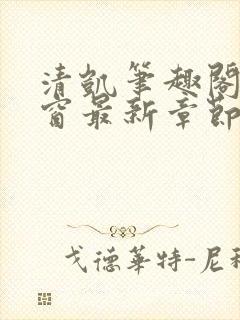 清凯笔趣阁
窗最新章节
戈德華特-尼科